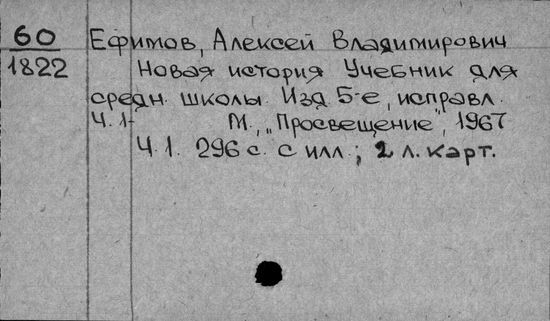 60 Ефимов, Алексей Владимирович
1822 Новая история Учебник для
средн. школы. Изд 5-е, исправл.
Ч.1- М., „Просвещение", 1967
Ч.1. 296 с. с илл.; 2 л. карт.